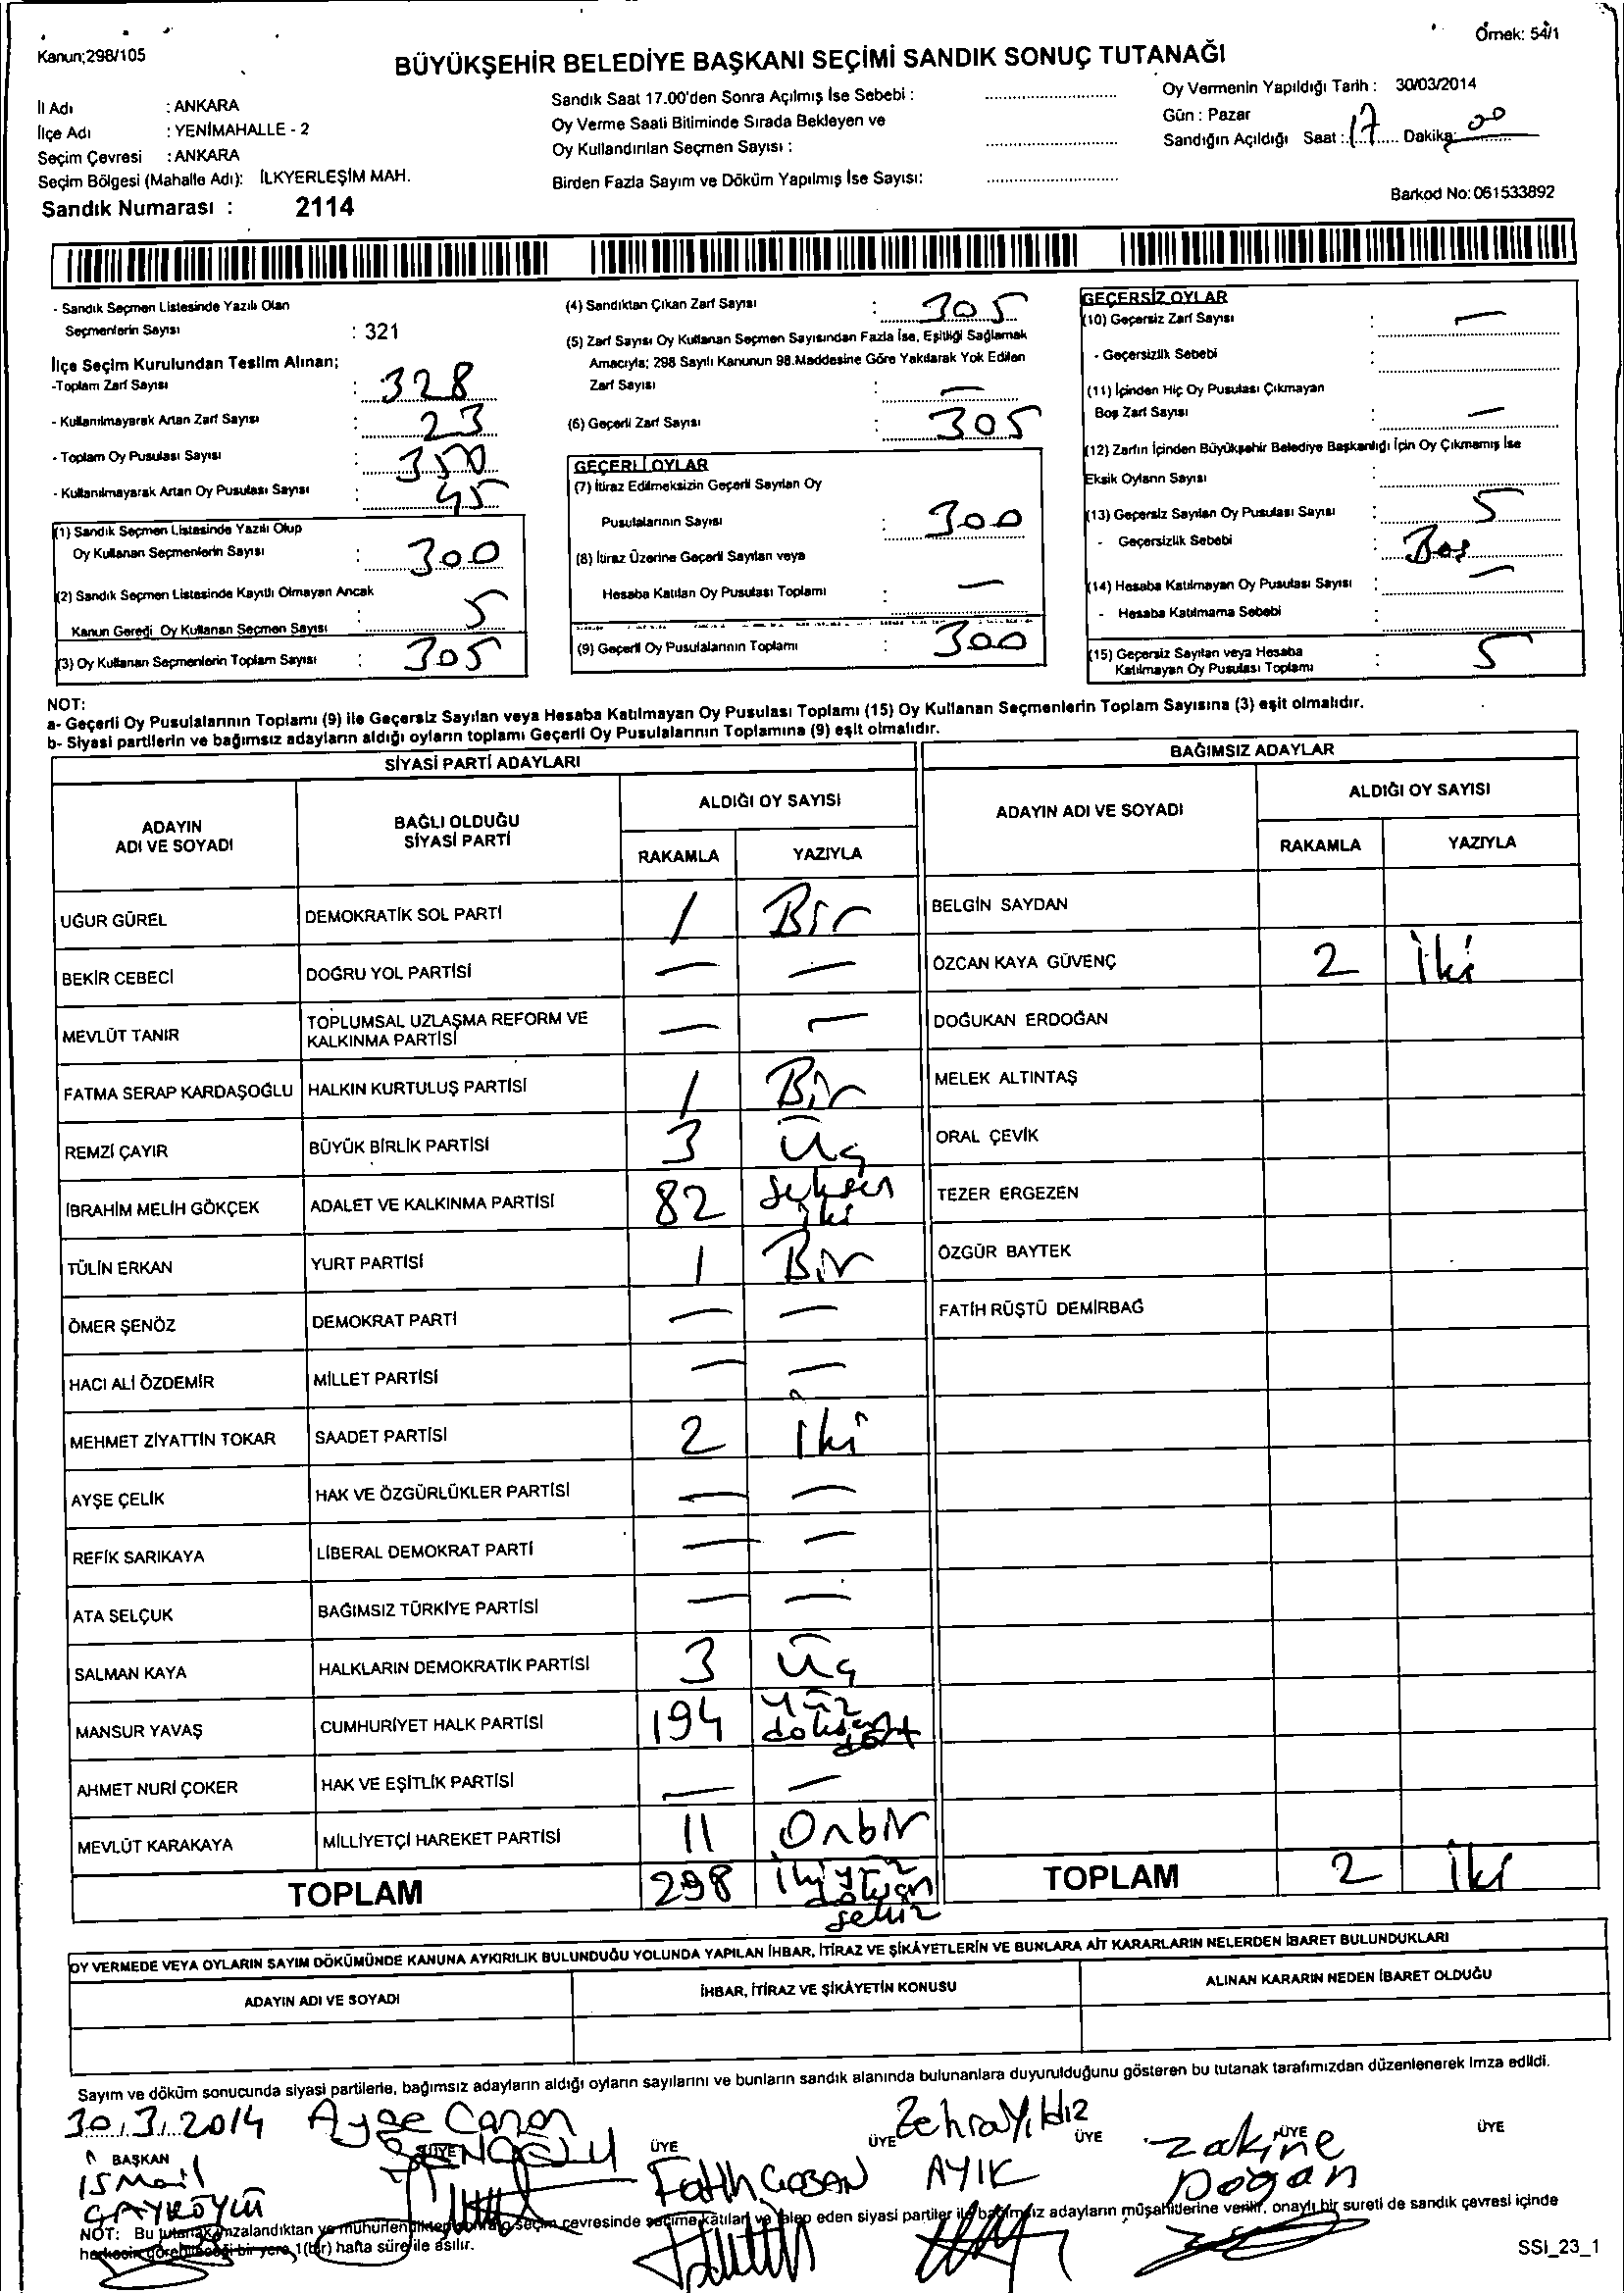 Kanun;298/105
Örnek: 54/1
BÜYÜKŞEHİR BELEDİYE BAŞKANI SEÇİMİ SANDIK SONUÇ TUTANAĞI
İl Adı : ANKARA
İlçe Adı : YENİMAHALLE - 2
Seçim Çevresi : ANKARA
Seçim Bölgesi (Mahalle Adı): İLKYERLEŞİM MAH.
Sandık Numarası : 2114
Sandık Saat 17.00'den Sonra Açılmış İse Sebebi :
Oy Verme Saati Bitiminde Sırada Bekleyen ve
Oy Kullandırılan Seçmen Sayısı :
Birden Fazla Sayım ve Döküm Yapılmış İse Sayısı:
Oy Vermenin Yapıldığı Tarih : 30/03/2014
Gün : Pazar
Sandığın Açıldığı Saat : 17 Dakika: 00
Barkod No: 061533892
- Sandık Seçmen Listesinde Yazılı Olan
Seçmenlerin Sayısı : 321
İlçe Seçim Kurulundan Teslim Alınan;
-Toplam Zarf Sayısı : 328
- Kullanılmayarak Artan Zarf Sayısı : 23
- Toplam Oy Pusulası Sayısı : 350
- Kullanılmayarak Artan Oy Pusulası Sayısı : 45
(1) Sandık Seçmen Listesinde Yazılı Olup
Oy Kullanan Seçmenlerin Sayısı : 300
(2) Sandık Seçmen Listesinde Kayıtlı Olmayan Ancak
Kanun Gereği Oy Kullanan Seçmen Sayısı : 5
(3) Oy Kullanan Seçmenlerin Toplam Sayısı : 305
(4) Sandıktan Çıkan Zarf Sayısı : 305
(5) Zarf Sayısı Oy Kullanan Seçmen Sayısından Fazla İse, Eşitliği Sağlamak
Amacıyla; 298 Sayılı Kanunun 98.Maddesine Göre Yakılarak Yok Edilen
Zarf Sayısı : —
(6) Geçerli Zarf Sayısı : 305
GEÇERLİ OYLAR
(7) İtiraz Edilmeksizin Geçerli Sayılan Oy
Pusulalarının Sayısı : 300
(8) İtiraz Üzerine Geçerli Sayılan veya
Hesaba Katılan Oy Pusulası Toplamı : —
(9) Geçerli Oy Pusulalarının Toplamı : 300
GEÇERSİZ OYLAR
(10) Geçersiz Zarf Sayısı : —
- Geçersizlik Sebebi :
(11) İçinden Hiç Oy Pusulası Çıkmayan
Boş Zarf Sayısı : —
(12) Zarfın İçinden Büyükşehir Belediye Başkanlığı İçin Oy Çıkmamış İse
Eksik Oyların Sayısı :
(13) Geçersiz Sayılan Oy Pusulası Sayısı : 5
- Geçersizlik Sebebi : Boş
(14) Hesaba Katılmayan Oy Pusulası Sayısı : —
- Hesaba Katılmama Sebebi :
(15) Geçersiz Sayılan veya Hesaba
Katılmayan Oy Pusulası Toplamı : 5
NOT:
a- Geçerli Oy Pusulalarının Toplamı (9) ile Geçersiz Sayılan veya Hesaba Katılmayan Oy Pusulası Toplamı (15) Oy Kullanan Seçmenlerin Toplam Sayısına (3) eşit olmalıdır.
b- Siyasi partilerin ve bağımsız adayların aldığı oyların toplamı Geçerli Oy Pusulalarının Toplamına (9) eşit olmalıdır.
SİYASİ PARTİ ADAYLARI
ADAYIN ADI VE SOYADI
BAĞLI OLDUĞU SİYASİ PARTİ
ALDIĞI OY SAYISI
RAKAMLA YAZIYLA
UĞUR GÜREL DEMOKRATİK SOL PARTİ 1 Bir
BEKİR CEBECİ DOĞRU YOL PARTİSİ — —
MEVLÜT TANIR TOPLUMSAL UZLAŞMA REFORM VE KALKINMA PARTİSİ — —
FATMA SERAP KARDAŞOĞLU HALKIN KURTULUŞ PARTİSİ 1 Bir
REMZİ ÇAYIR BÜYÜK BİRLİK PARTİSİ 3 Üç
İBRAHİM MELİH GÖKÇEK ADALET VE KALKINMA PARTİSİ 82 Seksen iki
TÜLİN ERKAN YURT PARTİSİ 1 Bir
ÖMER ŞENÖZ DEMOKRAT PARTİ — —
HACI ALİ ÖZDEMİR MİLLET PARTİSİ — —
MEHMET ZİYATTİN TOKAR SAADET PARTİSİ 2 iki
AYŞE ÇELİK HAK VE ÖZGÜRLÜKLER PARTİSİ — —
REFİK SARIKAYA LİBERAL DEMOKRAT PARTİ — —
ATA SELÇUK BAĞIMSIZ TÜRKİYE PARTİSİ — —
SALMAN KAYA HALKLARIN DEMOKRATİK PARTİSİ 3 Üç
MANSUR YAVAŞ CUMHURİYET HALK PARTİSİ 194 Yüz doksan dört
AHMET NURİ ÇOKER HAK VE EŞİTLİK PARTİSİ — —
MEVLÜT KARAKAYA MİLLİYETÇİ HAREKET PARTİSİ 11 Onbir
TOPLAM 298 ikiyüz doksan sekiz
BAĞIMSIZ ADAYLAR
ADAYIN ADI VE SOYADI
ALDIĞI OY SAYISI
RAKAMLA YAZIYLA
BELGİN SAYDAN
ÖZCAN KAYA GÜVENÇ 2 İki
DOĞUKAN ERDOĞAN
MELEK ALTINTAŞ
ORAL ÇEVİK
TEZER ERGEZEN
ÖZGÜR BAYTEK
FATİH RÜŞTÜ DEMİRBAĞ
TOPLAM 2 İki
OY VERMEDE VEYA OYLARIN SAYIM DÖKÜMÜNDE KANUNA AYKIRILIK BULUNDUĞU YOLUNDA YAPILAN İHBAR, İTİRAZ VE ŞİKÂYETLERİN VE BUNLARA AİT KARARLARIN NELERDEN İBARET BULUNDUKLARI
ADAYIN ADI VE SOYADI
İHBAR, İTİRAZ VE ŞİKÂYETİN KONUSU
ALINAN KARARIN NEDEN İBARET OLDUĞU
Sayım ve döküm sonucunda siyasi partilerle, bağımsız adayların aldığı oyların sayılarını ve bunların sandık alanında bulunanlara duyurulduğunu gösteren bu tutanak tarafımızdan düzenlenerek imza edildi.
30.3.2014 Ayşe Canan ŞENOĞLU Zehra Yıldız AYIK Zakine Doğan
BAŞKAN ÜYE ÜYE ÜYE ÜYE ÜYE ÜYE
İsmail Fatih ÇOBAN
NOT: Bu tutanak imzalandıktan ve mühürlendikten sonra seçim çevresinde seçime katılan ve talep eden siyasi partiler ile bağımsız adayların müşahitlerine verilir, onaylı bir sureti de sandık çevresi içinde
herkesin görebileceği bir yere 1(bir) hafta süre ile asılır.
SSI_23_1